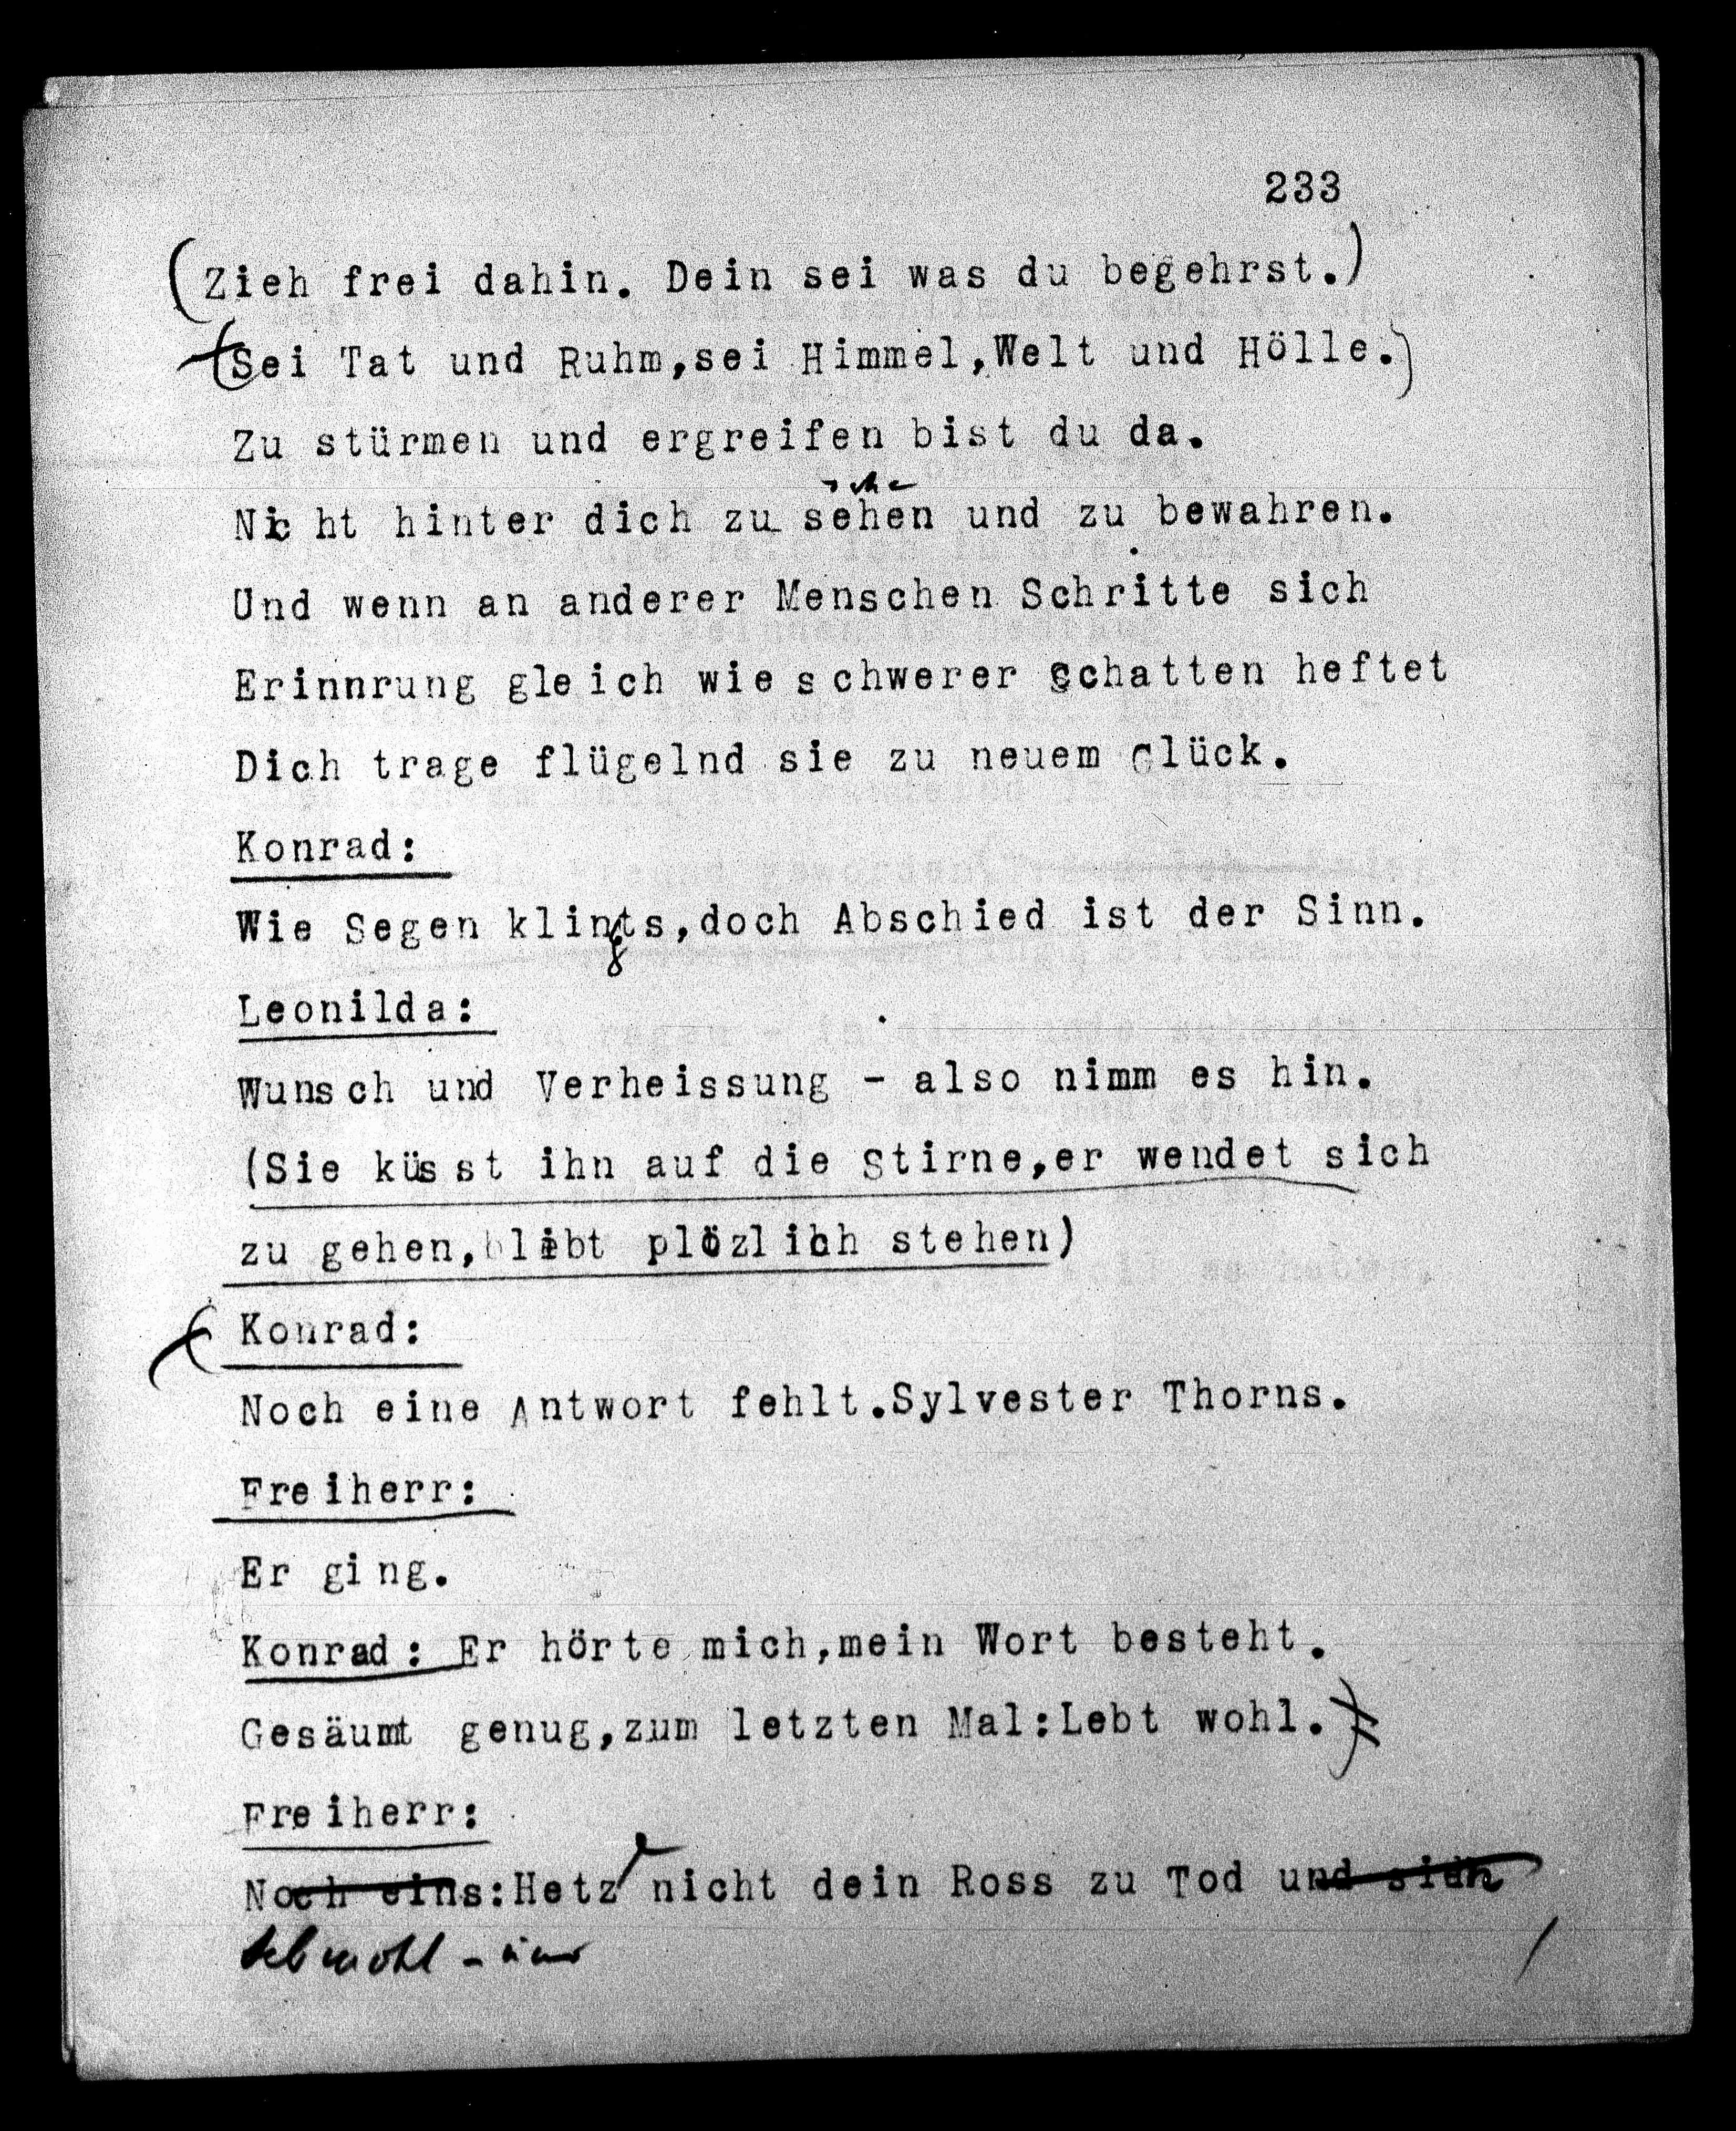 233
(Zieh frei dahin. Dein sei was du begehrst.)
(Sei Tat und Ruhm,sei Himmel,Welt und Hölle.)
Zu stürmen und ergreifen bist du da.
Nicht hinter dich zu sehen und zu bewahren.
Und wenn an anderer Menschen Schritte sich
Erinnrung gleich wie schwerer Schatten heftet
Dich trage flügelnd sie zu neuem Glück.
Konrad:
Wie Segen klingts,doch Abschied ist der Sinn.
Leonilda:
Wunsch und Verheissung - also nimm es hin.
(Sie küsst ihn auf die Stirne,er wendet sich
zu gehen,blibt plözlich stehen)
(Konrad:
Noch eine Antwort fehlt.Sylvester Thorns.
Freiherr:
Er ging.
Konrad: Er hörte mich,mein Wort besteht.
Gesäumt genug,zum letzten Mal:Lebt wohl.)
Freiherr:
Noch eins:Hetz nicht dein Ross zu Tod und sich